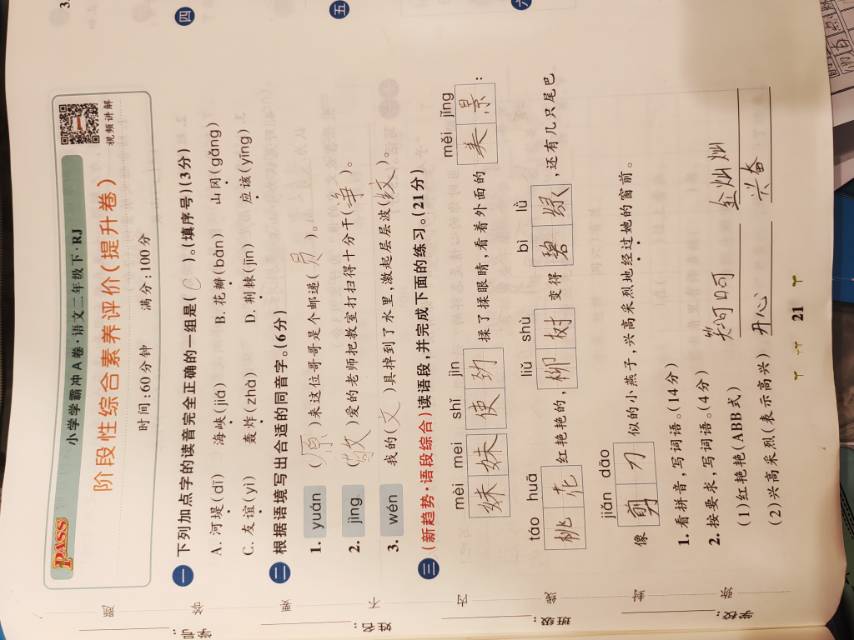 PASS 小学学霸冲A卷·语文二年级下·RJ
阶段性综合素养评价(提升卷)
时间:60分钟 满分:100分
视频讲解
一 下列加点字的读音完全正确的一组是(C)。(填序号)(3分)
A.河堤(dī) 海峡(jiá) B.花瓣(bàn) 山冈(gǎng)
C.友谊(yì) 轰炸(zhà) D.荆棘(jīn) 应该(yīng)
二 根据语境写出合适的同音字。(6分)
1. yuán (原)来这位哥哥是个邮递(员)。
2. jìng (敬)爱的老师把教室打扫得十分干(净)。
3. wén 我的(文)具掉到了水里,激起层层波(纹)。
三 (新趋势·语段综合)读语段,并完成下面的练习。(21分)
mèi mei shǐ jìn měi jǐng
妹妹 使劲 揉了揉眼睛,看着外面的 美景 :
táo huā liǔ shù bì lǜ
桃花 红艳艳的, 柳树 变得 碧绿 ,还有几只尾巴
jiǎn dāo
像 剪刀 似的小燕子,兴高采烈地经过她的窗前。
1.看拼音,写词语。(14分)
2.按要求,写词语。(4分)
(1)红艳艳(ABB式) 笑呵呵 金灿灿
(2)兴高采烈(表示高兴) 开心 兴奋
21
四
五
六
3.
学校:
班级:
姓名:
学号: